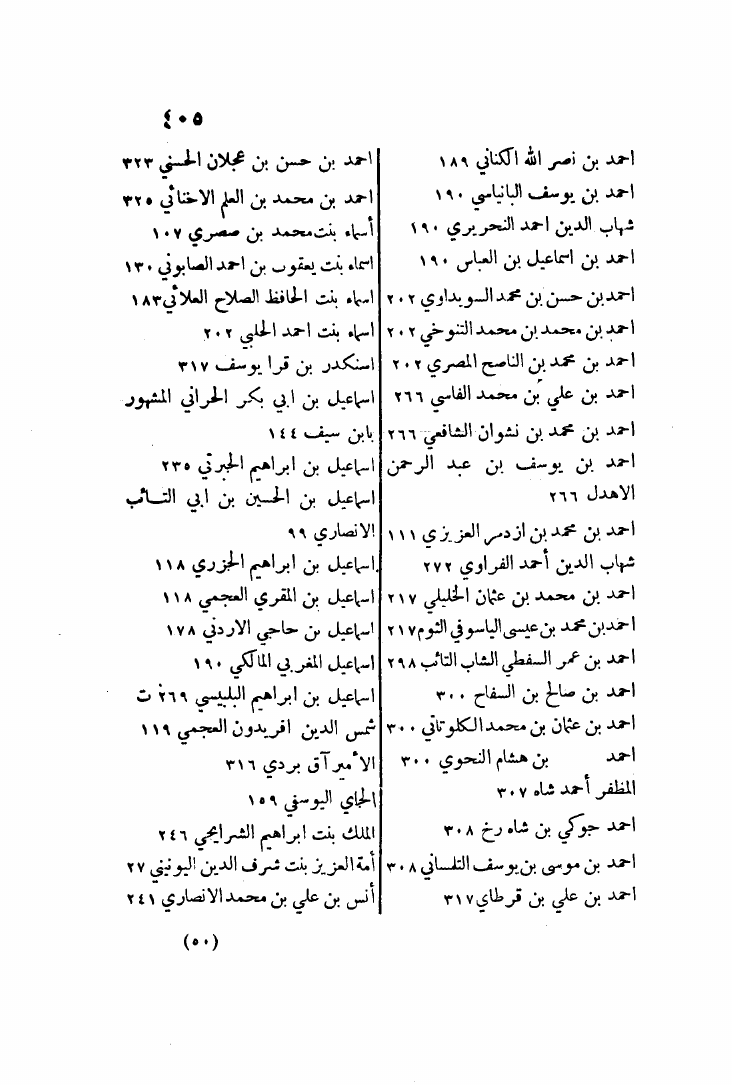 ٤٠٥
احمد بن نصر الله الكناني ١٨٩
احمد بن يوسف البانياسي ١٩٠
شهاب الدين احمد النحريري ١٩٠
احمد بن اسماعيل بن العباس ١٩٠
احمد بن حسن بن محمد السويداوي ٢٠٢
احمد بن محمد بن محمد التنوخي ٢٠٢
احمد بن محمد بن الناصح المصري ٢٠٢
احمد بن علي بن محمد الفاسي ٢٦٦
احمد بن محمد بن نشوان الشافعي ٢٦٦
احمد بن يوسف بن عبد الرحمن
الاهدل ٢٦٦
احمد بن محمد بن ازدمر العزيزي ١١١
شهاب الدين أحمد الفراوي ٢٧٢
احمد بن محمد بن عثمان الخليلي ٢١٧
احمد بن محمد بن عيسى الياسوفي الثوم ٢١٧
احمد بن عمر السفطي الشاب التائب ٢٩٨
احمد بن صالح بن السفاح ٣٠٠
احمد بن عثمان بن محمد الكلوتاتي ٣٠٠
احمد بن هشام النحوي ٣٠٠
المظفر أحمد شاه ٣٠٧
احمد جوكي بن شاه رخ ٣٠٨
احمد بن موسى بن يوسف التلساني ٣٠٨
احمد بن علي بن قرطاي ٣١٧
احمد بن حسن بن عجلان الحسني ٣٢٣
احمد بن محمد بن العلم الاخنائي ٣٢٥
أسماء بنت محمد بن صصري ١٠٧
اسماء بنت يعقوب بن احمد الصابوني ١٣٠
اسماء بنت الحافظ الصلاح العلائي ١٨٣
اسماء بنت احمد الحلبي ٢٠٢
اسكندر بن قرا يوسف ٣١٧
اسماعيل بن ابي بكر الحراني المشهور
بابن سيف ١٤٤
اسماعيل بن ابراهيم الجبرتي ٢٣٥
اسماعيل بن الحسين بن ابي التائب
الانصاري ٩٩
اسماعيل بن ابراهيم الجزري ١١٨
اسماعيل بن المقري العجمي ١١٨
اسماعيل بن حاجي الاردني ١٧٨
اسماعيل المغربي المالكي ١٩٠
اسماعيل بن ابراهيم البلبيسي ٢٦٩ ت
شمس الدين افريدون العجمي ١١٩
الأمير آق بردي ٣١٦
الجاي اليوسفي ١٥٩
الملك بنت ابراهيم الشرايحي ٢٤٦
أمة العزيز بنت شرف الدين اليونيني ٢٧
أنس بن علي بن محمد الانصاري ٢٤١
(٥٠)